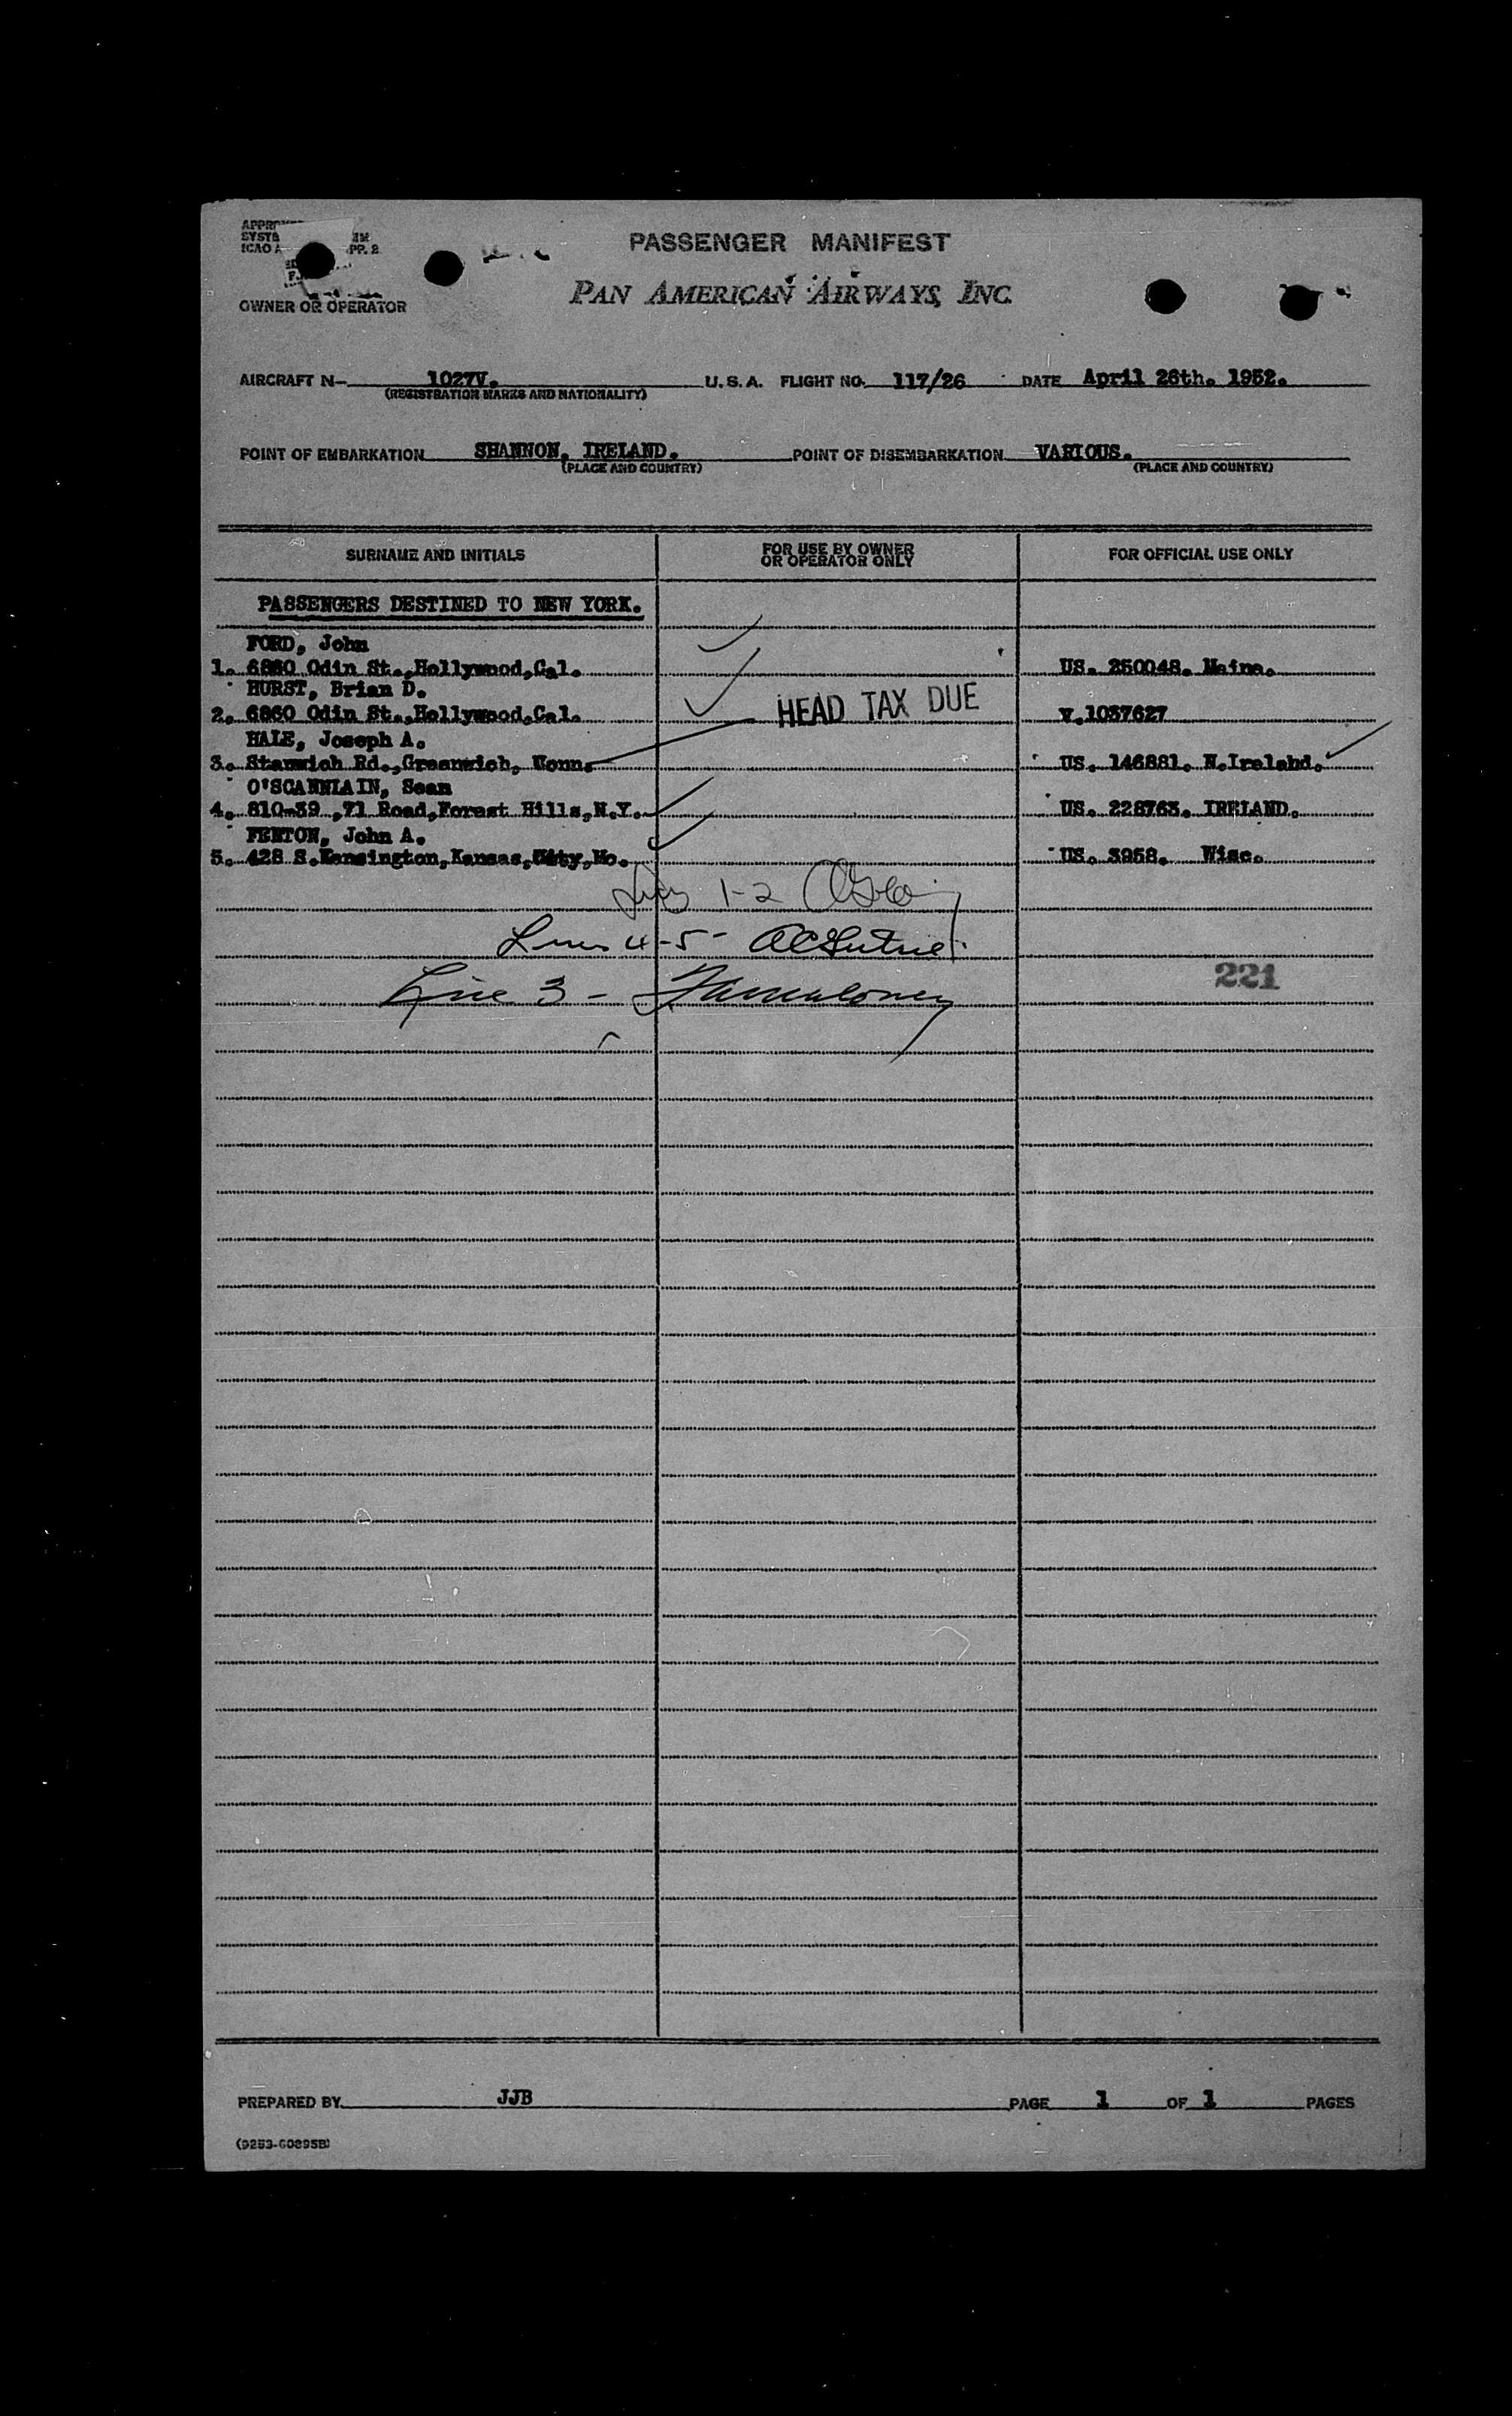 PASSENGER MANIFEST
PAN AMERICAN AIRWAYS, INC.
OWNER OR OPERATOR
AIRCRAFT N- 1027V. U.S.A. FLIGHT NO. 117/26 DATE April 26th. 1952.
(REGISTRATION MARKS AND NATIONALITY)
POINT OF EMBARKATION SHANNON, IRELAND. POINT OF DISEMBARKATION VARIOUS.
(PLACE AND COUNTRY) (PLACE AND COUNTRY)
SURNAME AND INITIALS FOR USE BY OWNER OR OPERATOR ONLY FOR OFFICIAL USE ONLY
PASSENGERS DESTINED TO NEW YORK.
FORD, John
1. 6860 Odin St.,Hollywood,Cal. US. 250048. Maine.
HURST, Brian D.
2. 6860 Odin St.,Hollywood,Cal. HEAD TAX DUE v.1037627
HALE, Joseph A.
3. Stanwich Rd.,Greenwich, Conn. US. 146881. N.Ireland.
O'SCANNLAIN, Sean
4. 810-39 ,71 Road,Forest Hills,N.Y. US. 228763. IRELAND.
FENTON, John A.
5. 428 S.Kensington,Kansas,City,Mo. US. 3958. Wisc.
1-2
Lines 4-5-
221
Line 3 -
PREPARED BY JJB PAGE 1 OF 1 PAGES